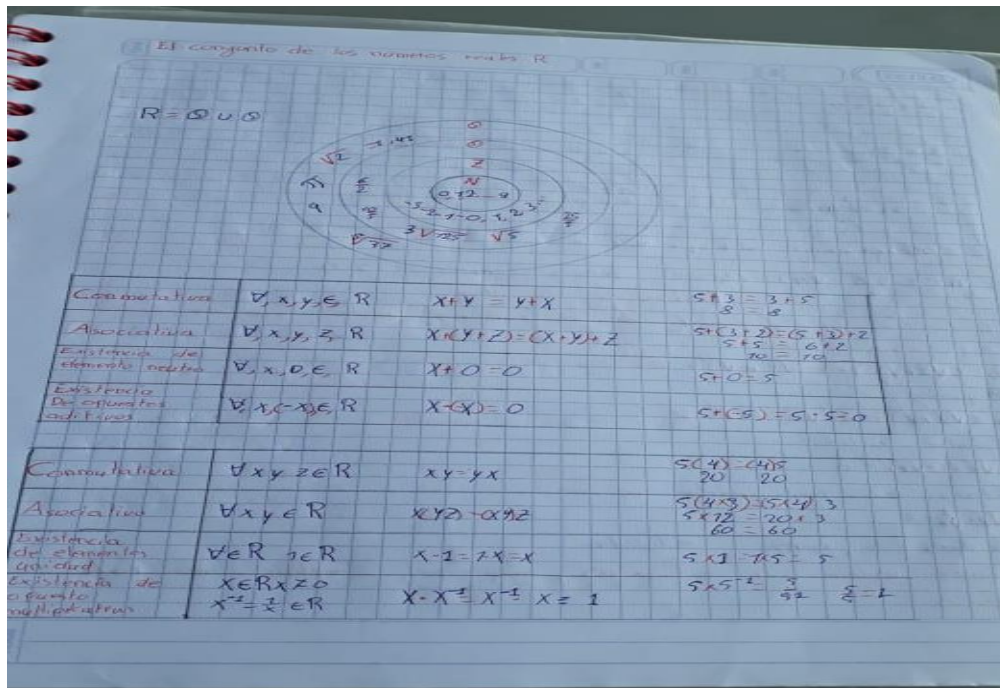 El conjunto de los números reales R
R = Q U Q
Q
Q
Z
N
0,12 - 9
√2
π
-5-2-1-0, 1, 2, 3,
3√125 √5
Conmutativa ∀, x, y, ∈, R x+y = y+x 5+3 = 3+5
8 = 8
Asociativa ∀, x, y, z, R x+(y+z)=(x+y)+z 5+(3+2)=(5+3)+2
5+5 = 6+2
10 = 10
Existencia de
elemento neutro ∀, x, 0, ∈, R x+0=0 5+0=5
Existencia
De opuestos
aditivos ∀, x,(-x)∈, R x-(x)=0 5+(-5)=5-5=0
Conmutativa ∀ x y z ∈ R xy=yx 5(4)=(4)5
20 20
Asociativa ∀ x y ∈ R x(yz)=(xy)z 5(4×3)=(5×4) 3
5×12 = 20×3
60 = 60
Existencia
de elementos
unidad ∀∈R 1∈R x-1=1x=x 5×1=1×5= 5
Existencia de
opuesto
x∈R x≠0
x⁻¹=1/x ∈R x-x⁻¹=x⁻¹ x= 1